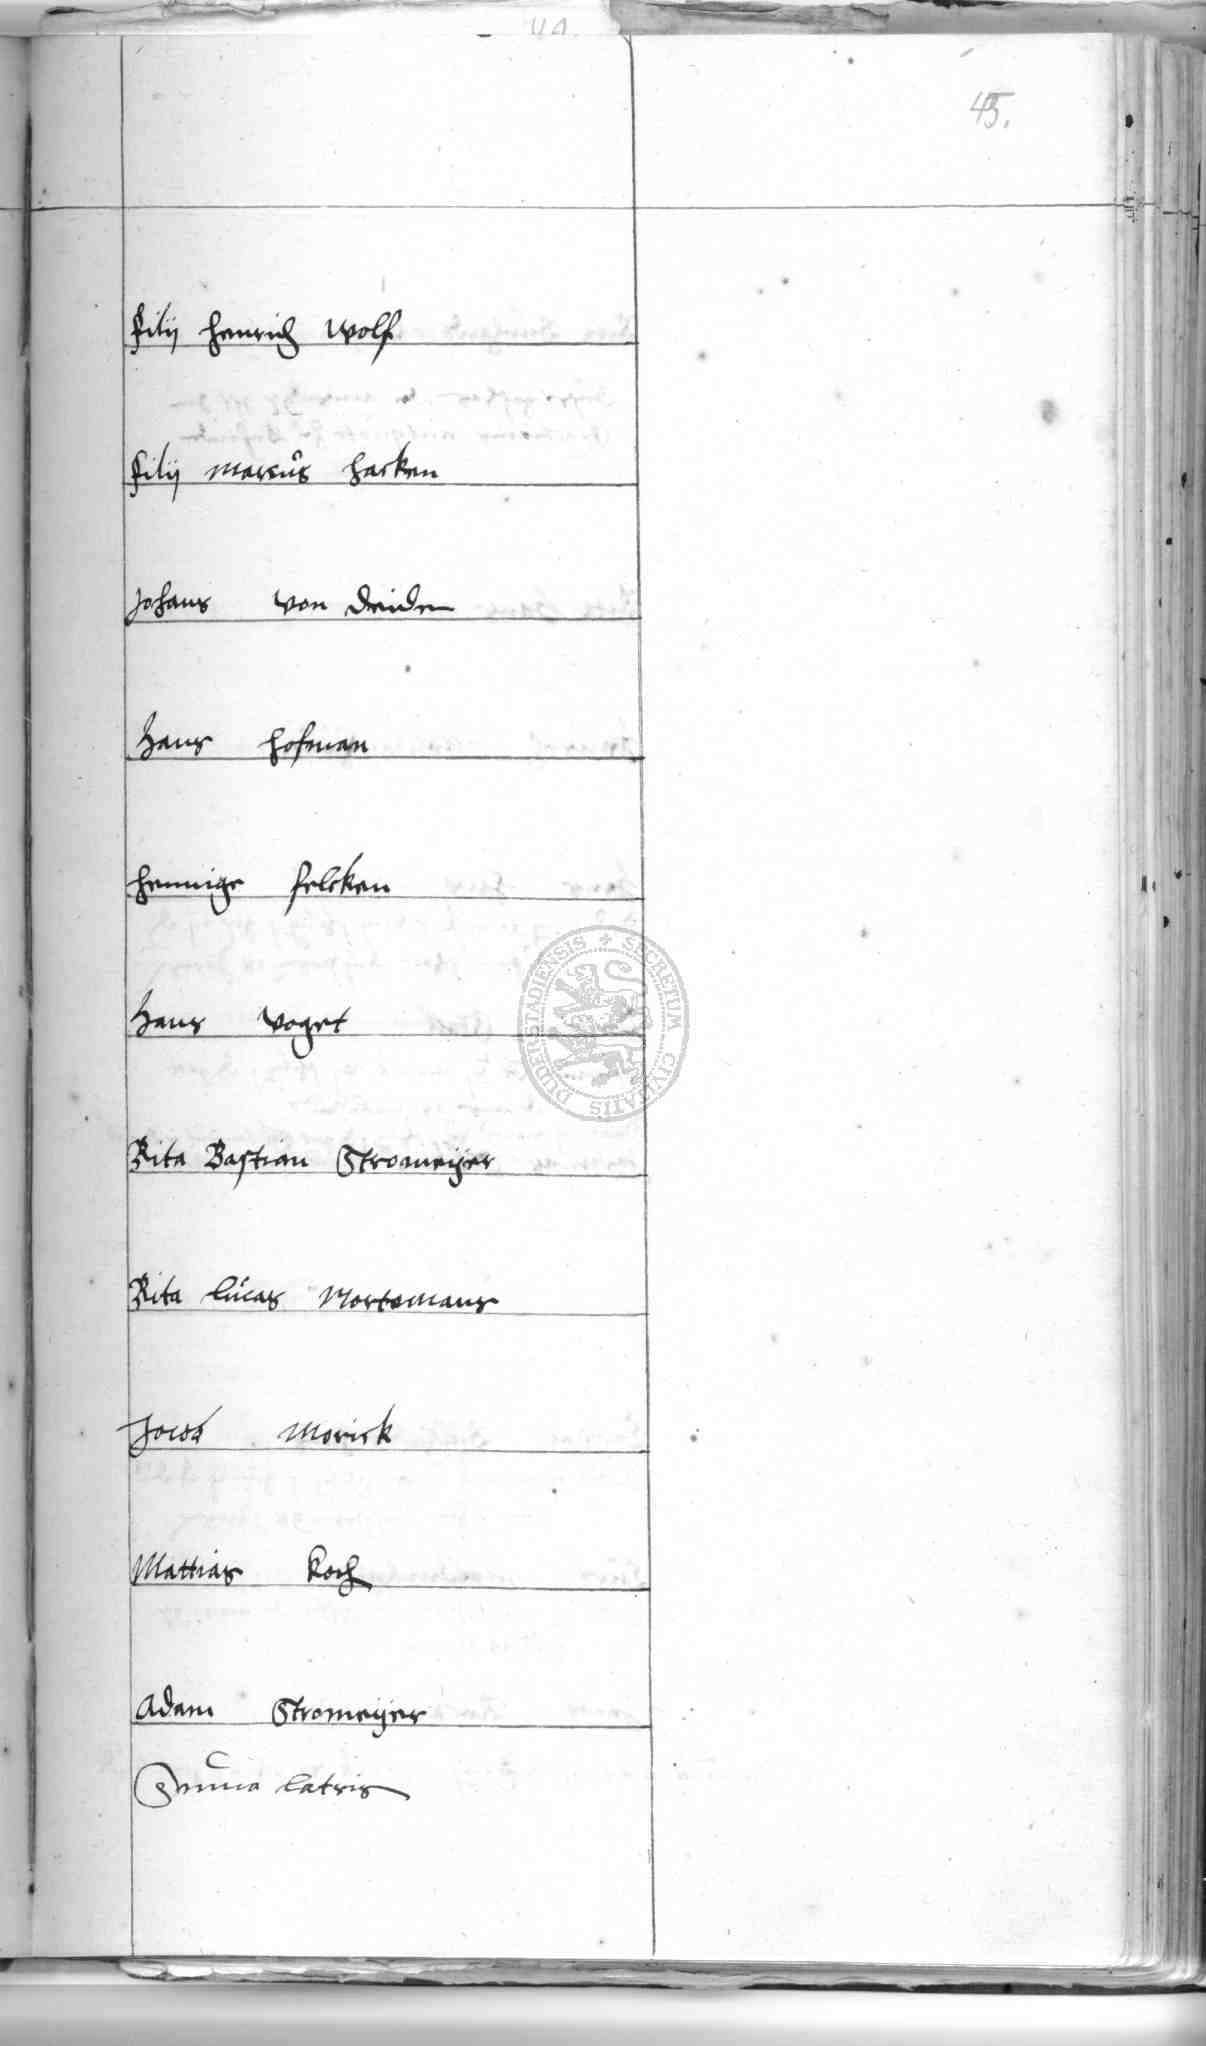 45.
filij Henrich Wolf
filij Marcus Harken
Johans von Deiden
Hans Hofman
Hennige Felcken
Hans Voget
Rita Bastian Stromeijer
Rita Lucas Nortemans
Jacob Morick
Mattias Koch
Adam Stromeijer
Summa latris
SECRETUM CIVITATIS DUDERSTADIENSIS